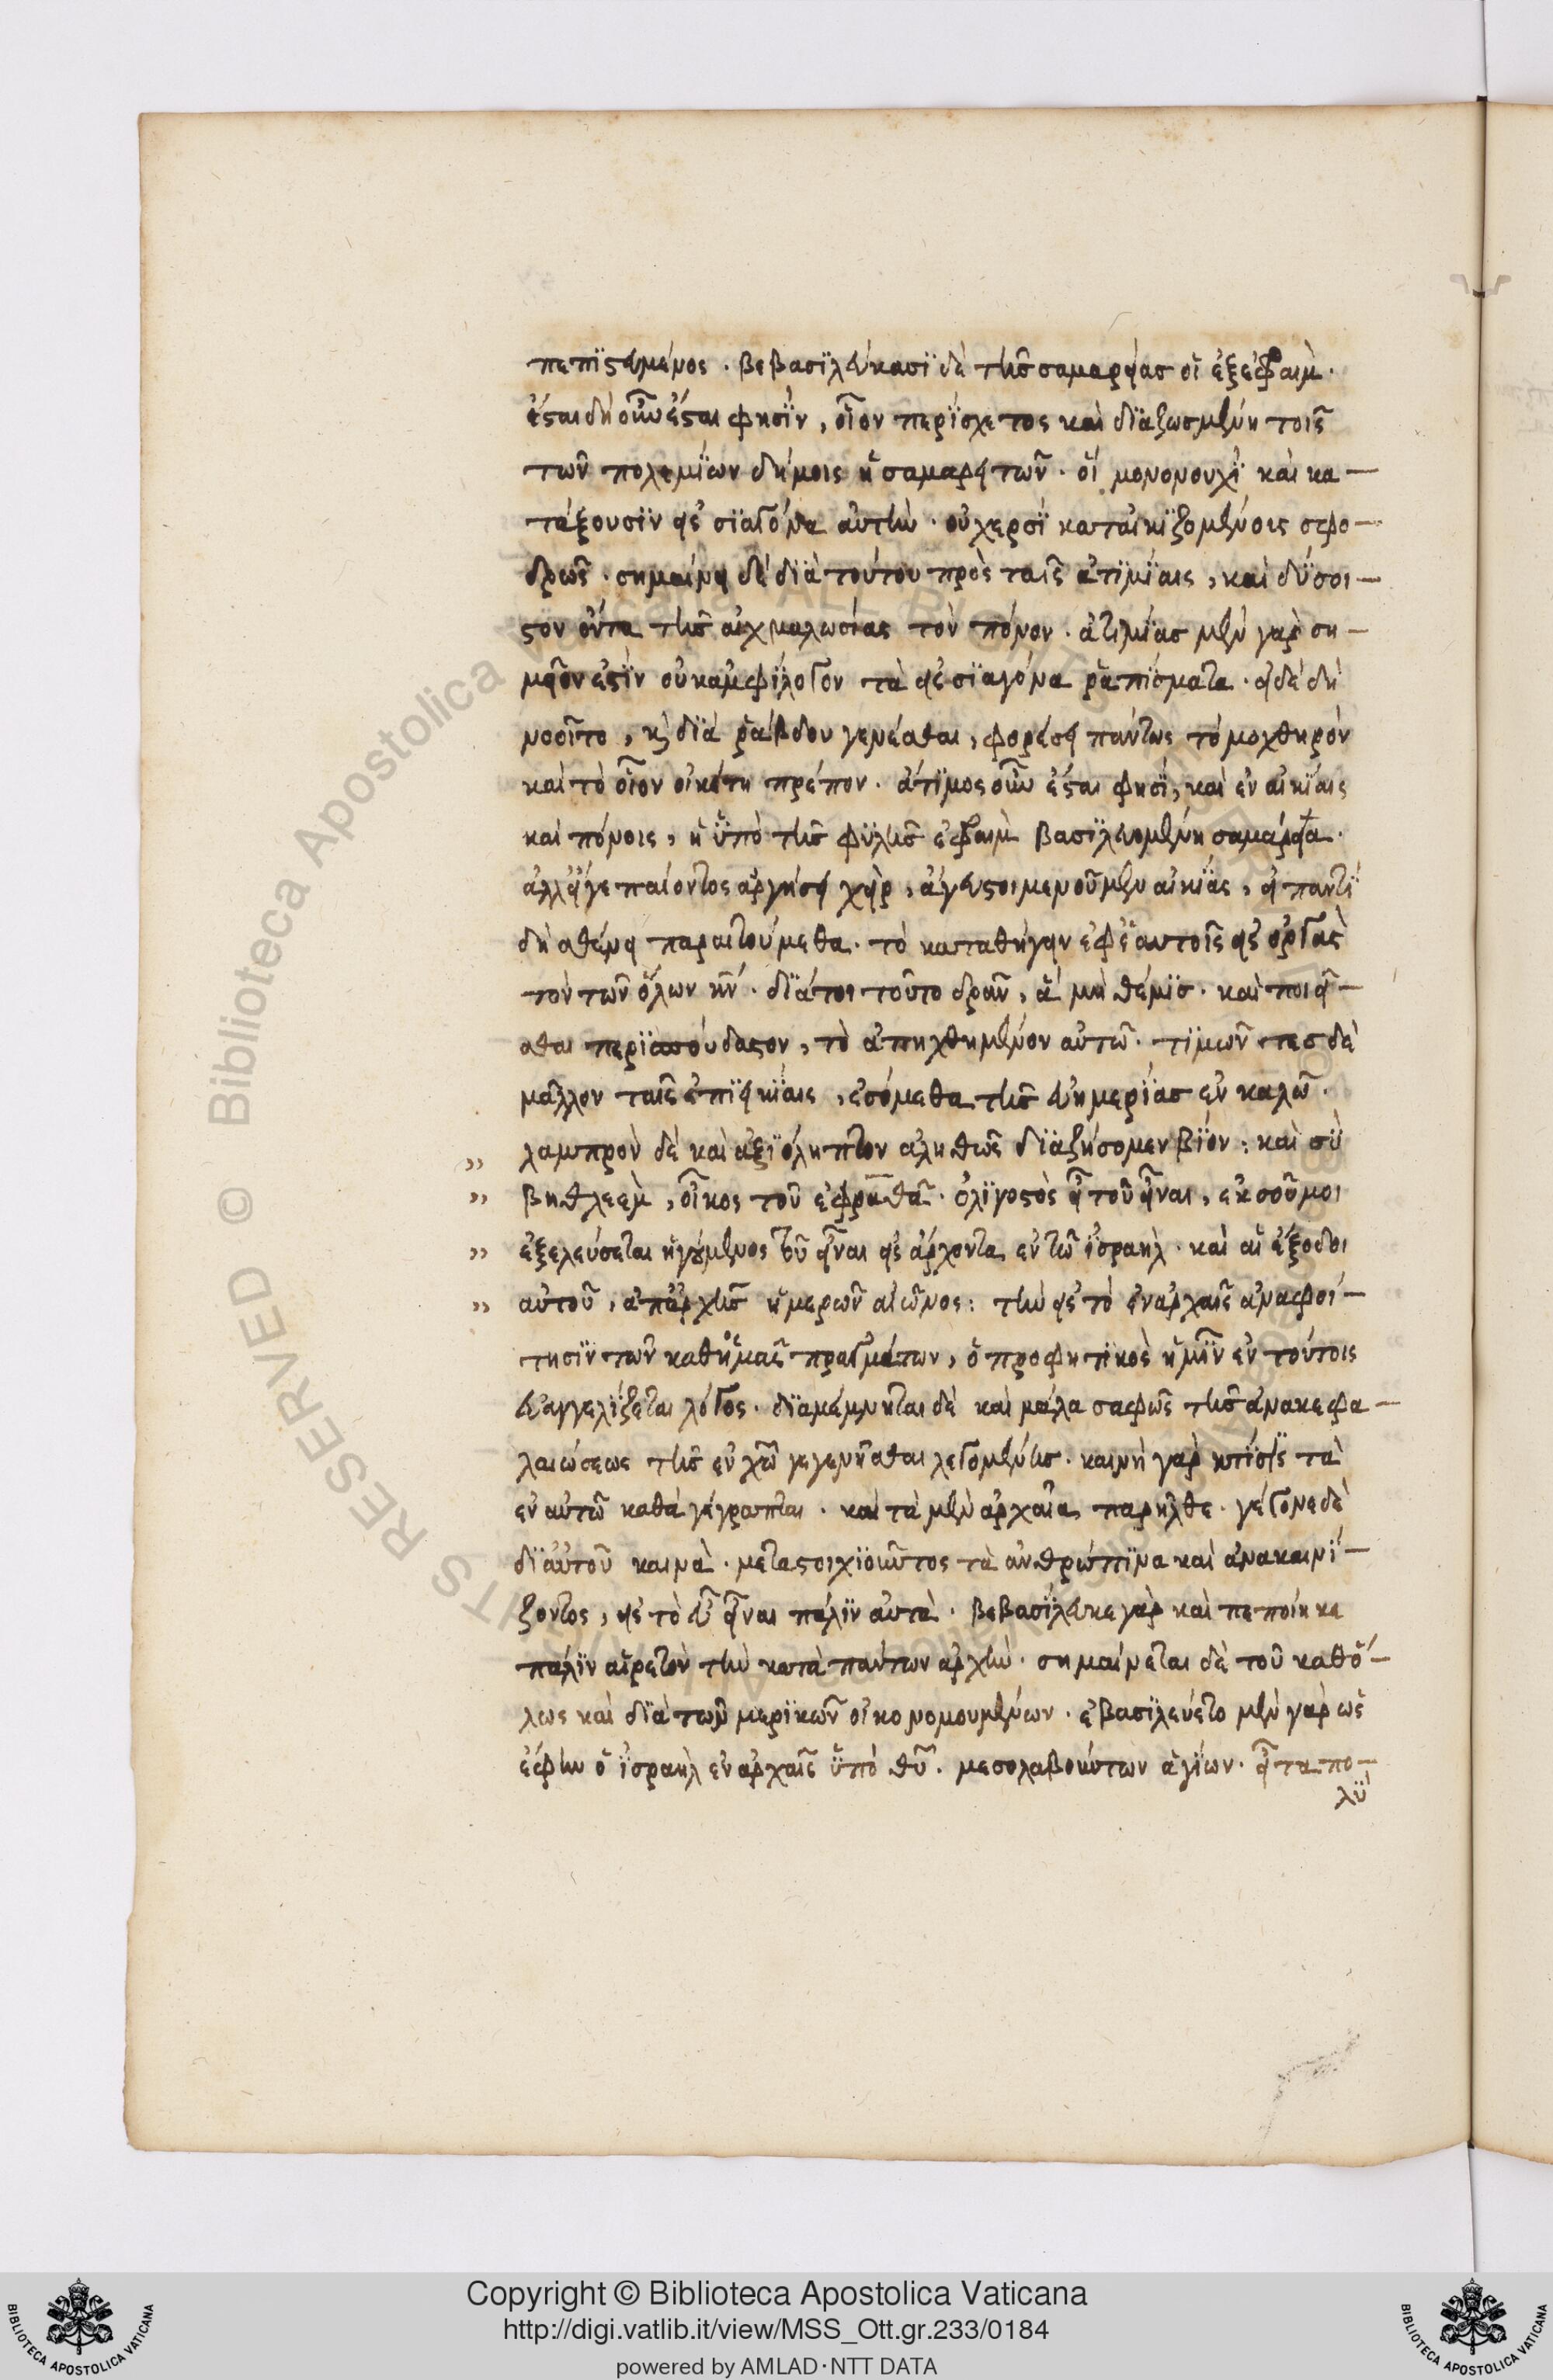 πεπιστευμένος. βεβασιλεύκασι δὲ τῆς σαμαρείας οἱ ἐξ ἐφραιμ.
ἔσται δὴ οὖν ἔσται φησὶν, οἷον περίσχετος καὶ διαζωσμένη τοῖς
τῶν πολεμίων δήμοις ἡ σαμαρειτῶν. οἳ μονονουχὶ καὶ κα-
τάξουσιν εἰς σιαγόνα αὐτὴν. οὐ χερσὶ καταικιζομένοις σφο-
δρῶς. σημαίνει δὲ διὰ τούτου πρὸς ταῖς ἀτιμίαις, καὶ δύσοι-
στον ὄντα τῆς αἰχμαλωσίας τὸν πόνον. ἀτιμίας μὲν γὰρ ση-
μεῖον ἐστὶν οὐκ ἀμφίλογον τὰ εἰς σιαγόνα ῥαπίσματα. εἰ δὲ δὴ
νοοῖτο, καὶ διὰ ῥάβδου γενέσθαι, φορέσει πάντως τὸ μοχθηρὸν
καὶ τὸ οἷον οἰκέτῃ πρέπον. ἄτιμος οὖν ἔσται φησὶ, καὶ ἐν αἰκίαις
καὶ πόνοις, ἡ ὑπὸ τῆς φυλῆς ἐφραιμ βασιλευομένη σαμάρεια.
ἀλλ' εἴγε παίοντος ἀργήσει χεὶρ, ἄγευστοι μένουμεν αἰκίας, εἰ παντὶ
δὴ σθένει παραιτούμεθα. τὸ καταθήγειν ἐφ' ἑαυτοῖς εἰς ὀργὰς
τὸν τῶν ὅλων κν. διάτοι τοῦτο δρᾶν, ἃ μὴ θέμις. καὶ ποιεῖ-
σθαι περισπούδαστον, τὸ ἀπηχθημένον αὐτῶ. τιμῶντες δὲ
μᾶλλον ταῖς ἐπιεικίαις, ἐσόμεθα τῆς εὐημερίας ἐν καλῶ.
λαμπρὸν δὲ καὶ ἀξιόληπτον ἀληθῶς διαζήσομεν βίον: καὶ σὺ
βηθλεὲμ, οἶκος τοῦ ἐφραθᾶ. ὀλιγοστὸς εἶ τοῦ εἶναι, ἐκ σοῦ μοι
ἐξελεύσεται ἡγούμενος τοῦ εἶναι εἰς ἄρχοντα ἐν τῶ ἰσραηλ. καὶ αἱ ἔξοδοι
αὐτοῦ, ἀπ' ἀρχῆς ἡμερῶν αἰῶνος: τὴν εἰς τὸ ἐν ἀρχαῖς ἀναφοί-
τησιν τῶν καθ' ἡμᾶς πραγμάτων, ὁ προφητικὸς ἡμῖν ἐν τούτοις
εὐαγγελίζεται λόγος. διαμέμνηται δὲ καὶ μάλα σαφῶς τῆς ἀνακεφα-
λαιώσεως τῆς ἐν χῶ γεγενῆσθαι λεγομένης. καινὴ γὰρ κτίσις τὰ
ἐν αὐτῶ καθὰ γέγραπται. καὶ τὰ μὲν ἀρχαῖα παρῆλθε. γέγονε δὲ
δι' αὐτοῦ καινὰ. μεταστοιχιοῦντος τὰ ἀνθρώπινα καὶ ἀνακαινί-
ζοντος, εἰς τὸ εὖ εἶναι πάλιν αὐτὰ. βεβασίλευκε γὰρ καὶ πεποίηκε
πάλιν αἱρετὸν τὴν κατὰ πάντων ἀρχὴν. σημαίνεται δὲ τοῦ καθό-
λως καὶ διὰ τῶν μερικῶν οἰκονομουμένων. ἐβασιλεύετο μὲν γὰρ ὡς
ἔφην ὁ ἰσραηλ ἐν ἀρχαῖς ὑπὸ θυ. μεσολαβούντων ἁγίων. εἶτα πο-
λὺ
Copyright © Biblioteca Apostolica Vaticana
http://digi.vatlib.it/view/MSS_Ott.gr.233/0184
powered by AMLAD·NTT DATA